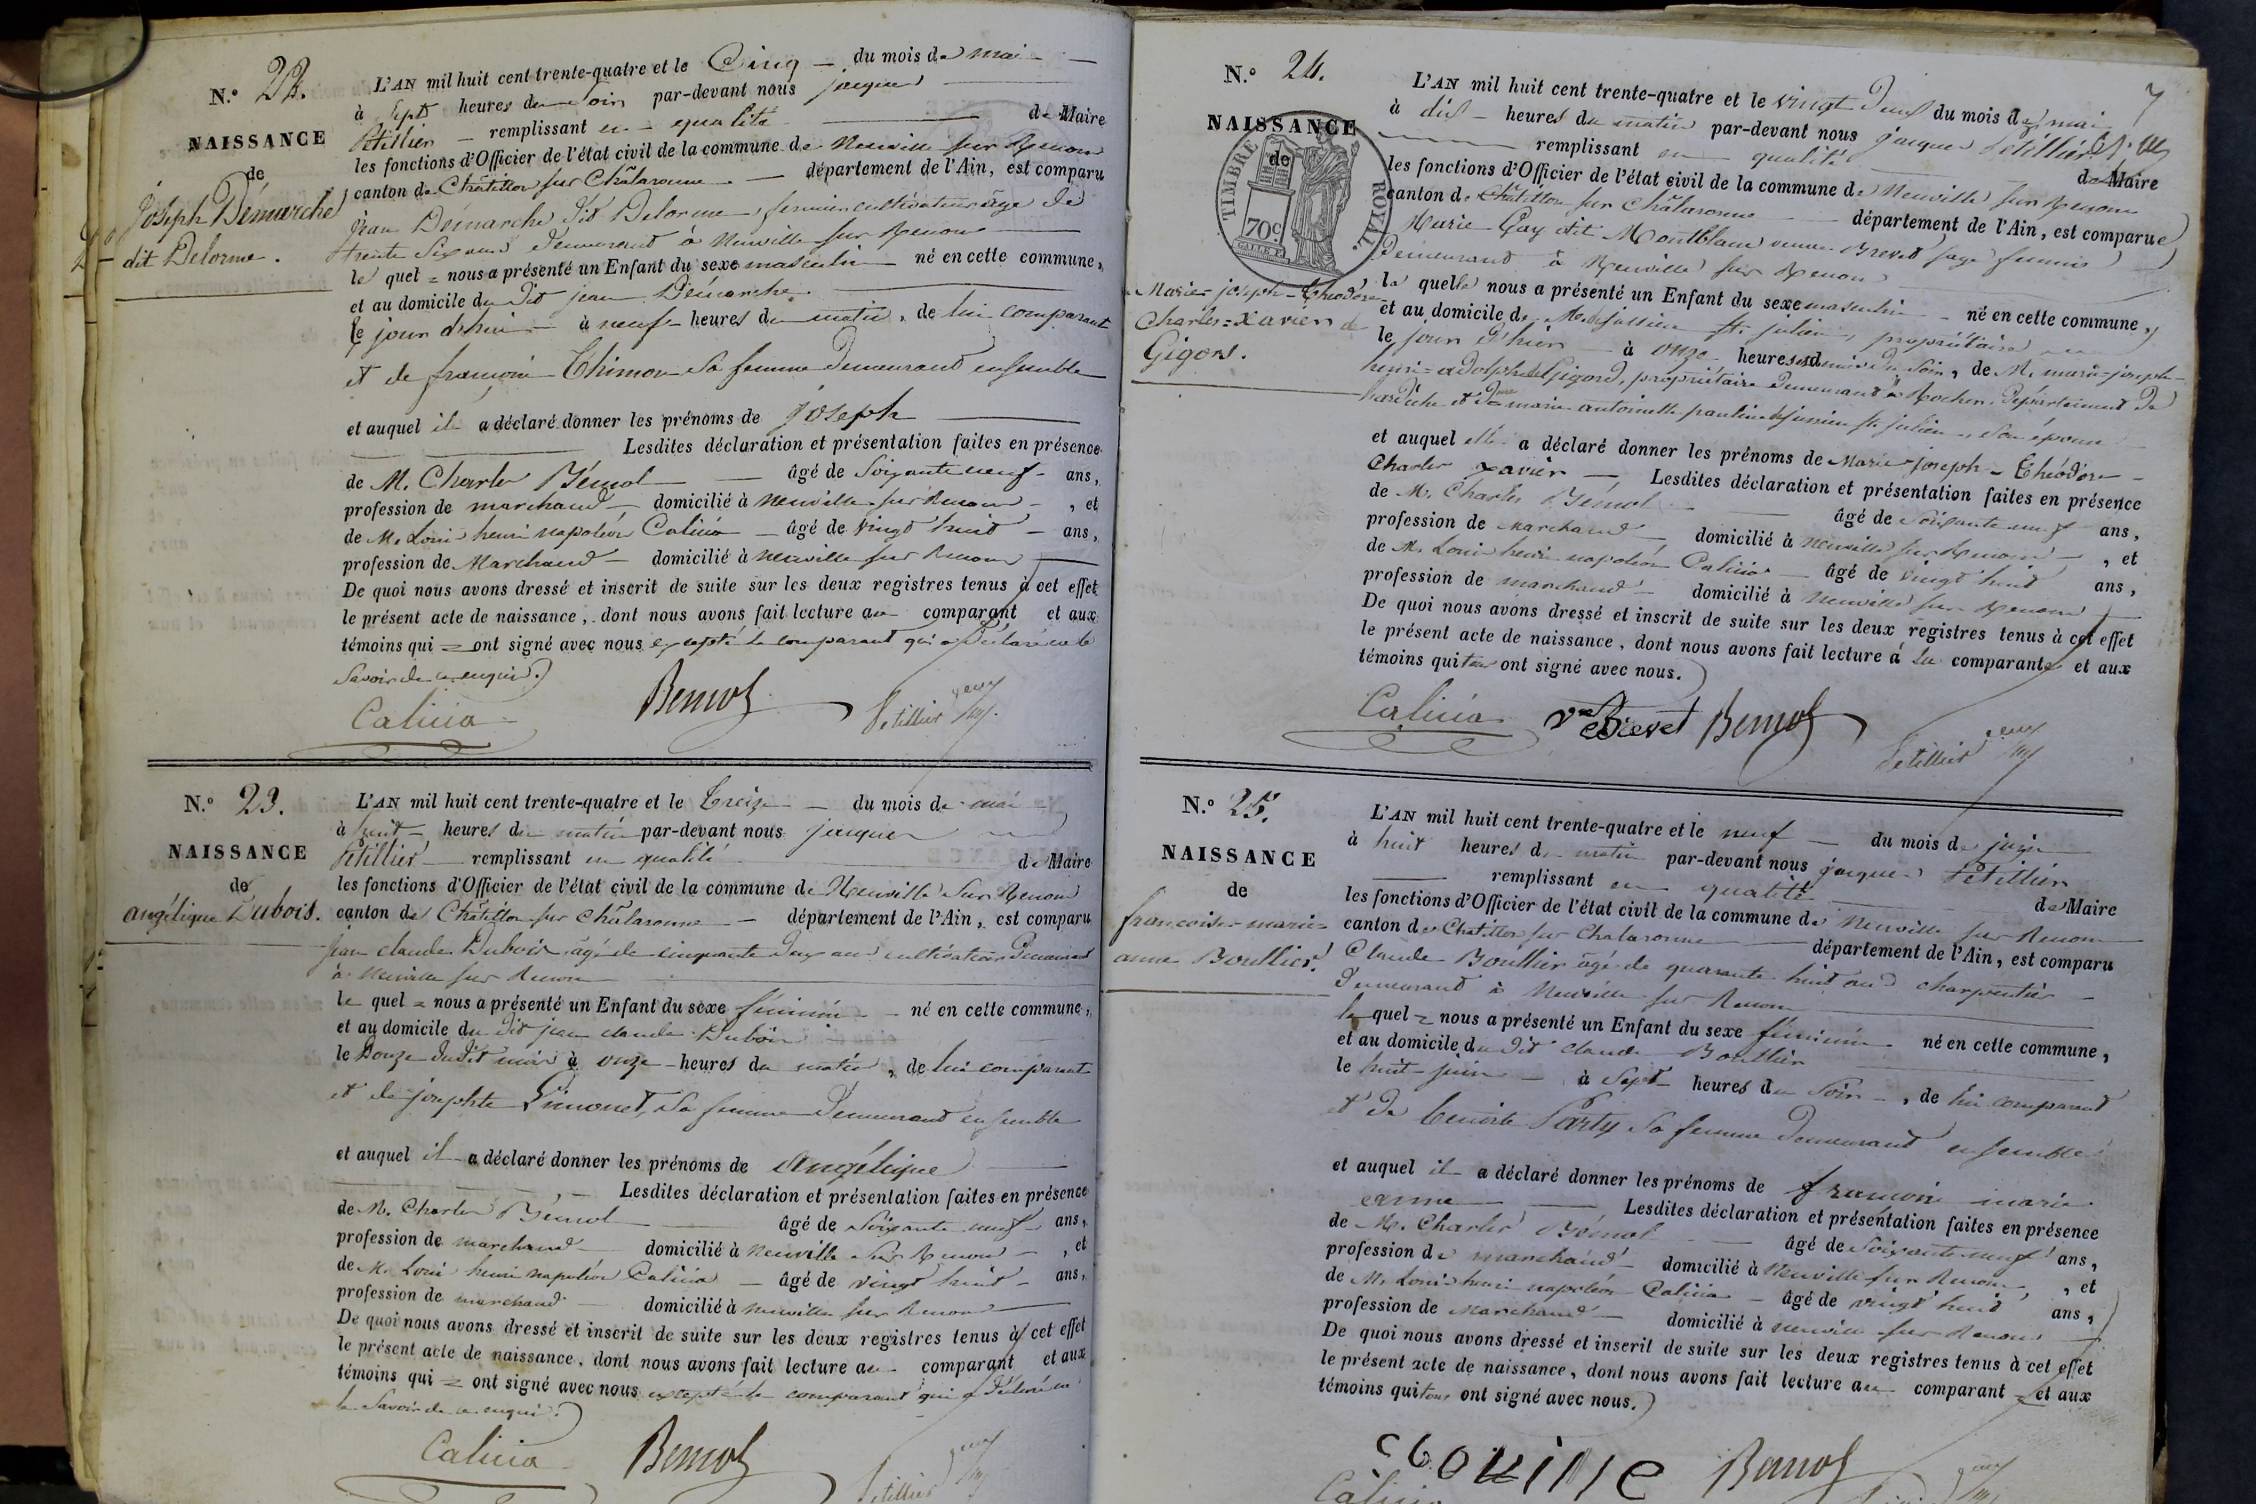 N.º 22.
NAISSANCE
de
Joseph Démarche
dit Delorme.
L'AN mil huit cent trente-quatre et le Cinq du mois de mai
à Sept heures du Soir par-devant nous jacques
Pétillier remplissant en qualité de Maire
les fonctions d'Officier de l'état civil de la commune de Neuville sur Renom
canton de Châtillon sur Châlaronne département de l'Ain, est comparu
jean Démarche dit Delorme, fermier cultivateur âgé de
trente six ans demeurant à Neuville sur Renom
le quel nous a présenté un Enfant du sexe masculin né en cette commune,
et au domicile du dit jean Démarche
le jour d'hui à neuf heures du matin, de lui comparant
et de françoise Thimon sa femme demeurant ensemble
et auquel il a déclaré donner les prénoms de joseph
Lesdites déclaration et présentation faites en présence
de M. Charles Bémol âgé de Soixante neuf ans,
profession de marchand domicilié à Neuville sur Renom, et
de M. Loui henri napoléon Calicia âgé de vingt huit ans,
profession de Marchand domicilié à Neuville sur Renom
De quoi nous avons dressé et inscrit de suite sur les deux registres tenus à cet effet
le présent acte de naissance, dont nous avons fait lecture au comparant et aux
témoins qui ont signé avec nous excepté le comparant qui a déclaré ne le
Savoir de ce enquis.
Calicia Bemol Petillier
N.º 23.
NAISSANCE
de
angélique Dubois.
L'AN mil huit cent trente-quatre et le treize du mois de mai
à huit heures du matin par-devant nous jacques
Pétillier remplissant en qualité de Maire
les fonctions d'Officier de l'état civil de la commune de Neuville Sur Renom
canton de Châtillon sur Châlaronne département de l'Ain, est comparu
jean claude Dubois âgé de cinquante deux ans cultivateur Demeurant
à Neuville sur Renom
le quel nous a présenté un Enfant du sexe féminin né en cette commune,
et au domicile du dit jean claude Dubois
le Douze dudit mois à onze heures du matin, de lui comparant
et de josephte Limonet, sa femme Demeurant ensemble
et auquel il a déclaré donner les prénoms de Angélique
Lesdites déclaration et présentation faites en présence
de M. Charles Bémol âgé de Soixante neuf ans,
profession de marchand domicilié à neuville Sur Renom, et
de M. Loui henri napoléon Calicia âgé de vingt huit ans,
profession de marchand domicilié à neuville sur Renom
De quoi nous avons dressé et inscrit de suite sur les deux registres tenus à cet effet
le présent acte de naissance, dont nous avons fait lecture au comparant et aux
témoins qui ont signé avec nous excepté le comparant qui a déclaré ne
le Savoir de ce enquis.
Calicia Bemol Petillier
7
N.º 24.
NAISSANCE
de
TIMBRE ROYAL.
70c.
Marie=joseph=théodore
Charles=Xavier de
Gigord.
L'AN mil huit cent trente-quatre et le vingt deux du mois de mai
à dix heures du matin par-devant nous jacques Pétillier
remplissant en qualité de Maire
les fonctions d'Officier de l'état civil de la commune de Neuville sur Renom
canton de Châtillon sur Châlaronne département de l'Ain, est comparue
Marie Gay dit Montblanc veuve Brevet sage femme
Demeurant à Neuville sur Renom
la quelle nous a présenté un Enfant du sexe masculin né en cette commune,
et au domicile de M. dejussieu St. julien, propriétaire
le jour d'hier à onze heures et demie du Soir, de M. marie=joseph=
henri=adolphe de Gigord, propriétaire demeurant à Rocher, Département de
l'ardèche et de dme marie antoinette pauline dejussieu st julien, son épouse
et auquel elle a déclaré donner les prénoms de Marie-joseph-Théodore
Charles xavier Lesdites déclaration et présentation faites en présence
de M. Charles Bémol âgé de Soixante neuf ans,
profession de marchand domicilié à neuville sur Renom, et
de M. Loui henri napoléon Calicia âgé de vingt huit ans,
profession de marchand domicilié à Neuville sur Renom
De quoi nous avons dressé et inscrit de suite sur les deux registres tenus à cet effet
le présent acte de naissance, dont nous avons fait lecture à la comparante et aux
témoins qui tous ont signé avec nous.
Calicia ve Brevet Bemol Petillier
N.º 25.
NAISSANCE
de
francoise=marie=
anne Boullier.
L'AN mil huit cent trente-quatre et le neuf du mois de juin
à huit heures du matin par-devant nous jacques Pétillier
remplissant en qualité de Maire
les fonctions d'Officier de l'état civil de la commune de Neuville sur Renom
canton de Chatillon sur Chalaronne département de l'Ain, est comparu
Claude Boullier âgé de quarante huit ans charpentier
Demeurant à Neuville sur Renom
le quel nous a présenté un Enfant du sexe féminin né en cette commune,
et au domicile du dit claude Boullier
le huit juin à Sept heures du Soir, de lui comparant
et de benoite Party sa femme demeurant ensemble
et auquel il a déclaré donner les prénoms de françoise marie
anne Lesdites déclaration et présentation faites en présence
de M. Charles Bémol âgé de Soixante neuf ans,
profession de marchand domicilié à Neuville sur Renom, et
de M. Loui henri napoléon Calicia âgé de vingt huit ans,
profession de Marchand domicilié à neuville sur Renom
De quoi nous avons dressé et inscrit de suite sur les deux registres tenus à cet effet
le présent acte de naissance, dont nous avons fait lecture au comparant et aux
témoins qui tous ont signé avec nous.
Bemol
Calicia